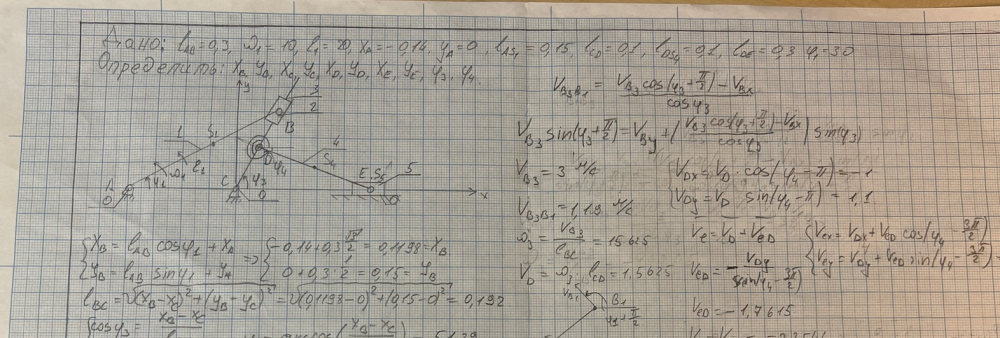 Дано: l_AB=0,3, ω₁=10, ε₁=20, x_A=-0,14, y_A=0, l_AS₁=0,15, l_CD=0,1, l_DS₄=0,1, l_DE=0,3 φ₁=30
Определить: x_B, y_B, x_C, y_C, x_D, y_D, x_E, y_E, φ₃, φ₄
y
3
2
B
1
S₁
4
S₄
D
φ₄
ε₁
ω₁
φ₁
A
0
C
φ₃
0
E
5
x
{x_B = l_AB cosφ₁ + x_A
{y_B = l_AB sinφ₁ + y_A
⇒
{-0,14+0,3·√3/2=0,1198=x_B
{0+0,3·1/2=0,15=y_B
l_BC=√((x_B-x_C)²+(y_B-y_C)²)=√((0,1198-0)²+(0,15-0)²=0,192
{cosφ₃= x_B-x_C
V_B₃B₁ = (V_B₃cos(φ₃+π/2)-V_Bx)/cosφ₃
V_B₃ sin(φ₃+π/2)=V_By+((V_B₃cos(φ₃+π/2)-V_Bx)/cosφ₃) sin(φ₃)
V_B₃=3 м/с
V_B₃B₁=1,19 м/с
ω₃=V_B₃/l_BC=15.625
V_D=ω₃·l_CD=1,5625
{V_Dx=V_D·cos(φ₄-π)=-1
{V_Dy=V_D sin(φ₄-π)=1,1
V_e=V_D+V_eD
V_eD=-V_Dy/sin(φ₄-3π/2)
V_eD=-1,7615
{V_ex=V_Dx+V_eD cos(φ₄-3π/2)
{V_ey=V_Dy+V_eD sin(φ₄-3π/2)
B₁